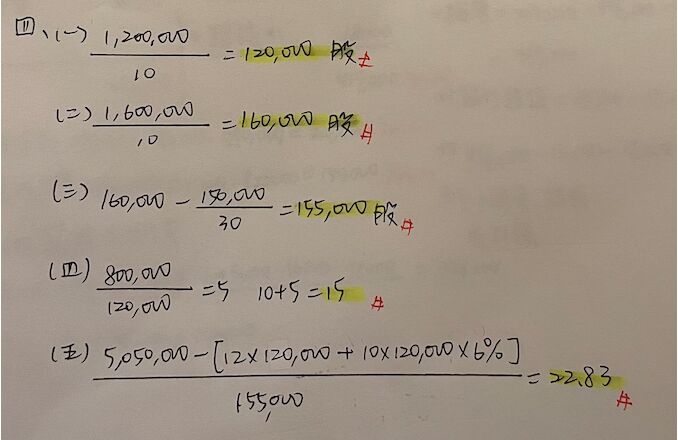 四、(一) 1,200,000 / 10 = 120,000 股 #
(二) 1,600,000 / 10 = 160,000 股 #
(三) 160,000 - 150,000 / 30 = 155,000 股 #
(四) 800,000 / 120,000 = 5 10+5 = 15 #
(五) 5,050,000 - [12×120,000 + 10×120,000×6%] / 155,000 = 22.83 #